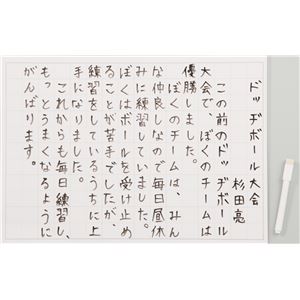 ドッヂボール大会
杉田亮
この前のドッヂボール
大会で、ぼくのチームは
優勝しました。
ぼくのチームは、みん
な仲良しなので毎日昼休
みに練習していました。
ぼくはボールを受け止め
ることが苦手でしたが、
練習をしているうちに上
手になりました。
これからも毎日練習し、
もっとうまくなるように
がんばります。